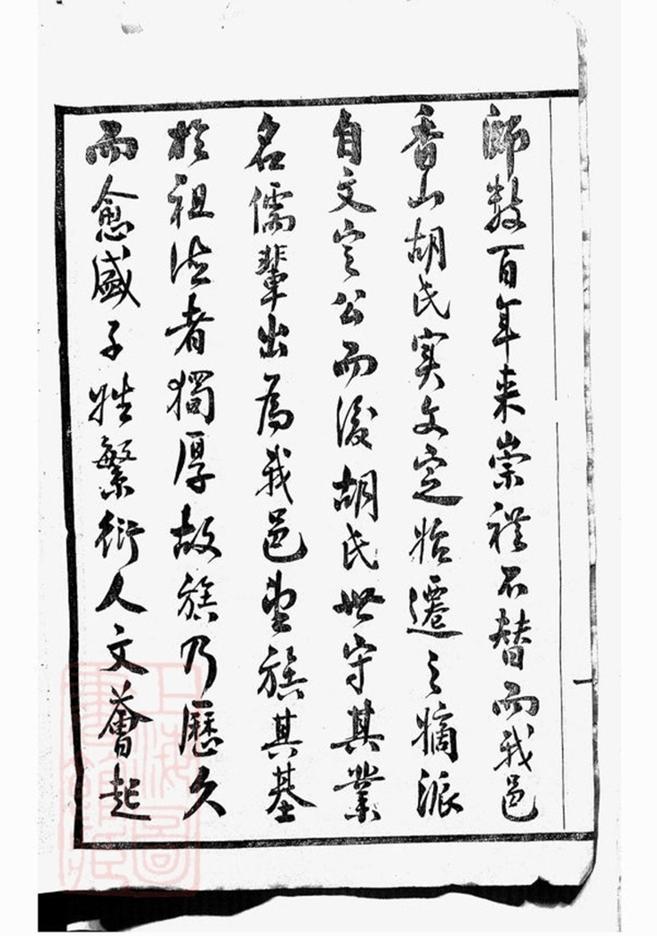 師數百年来崇禮不替而我邑
香山胡氏实文定始遷之嫡派
自文定公而後胡氏世守其業
名儒輩出為我邑望族其基
於祖德者獨厚故族乃歷久
而愈盛子姓繁衍人文薈起
上海圖書館藏